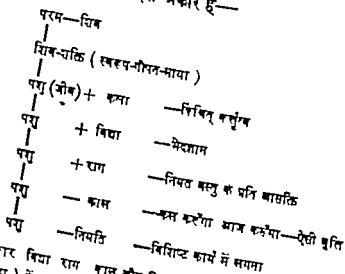 प्रकार है—
परम—शिव
शिव-शक्ति ( स्वरूप-गोपन-माया )
पशु (जीव) + कला —किंचित् कर्तृत्व
पशु + विद्या —भेदज्ञान
पशु + राग —नियत वस्तु के प्रति आसक्ति
पशु — काल —कल करूँगा आज करूँगा—ऐसी वृत्ति
पशु —नियति —विशिष्ट कार्य में लगना
विद्या राग काल